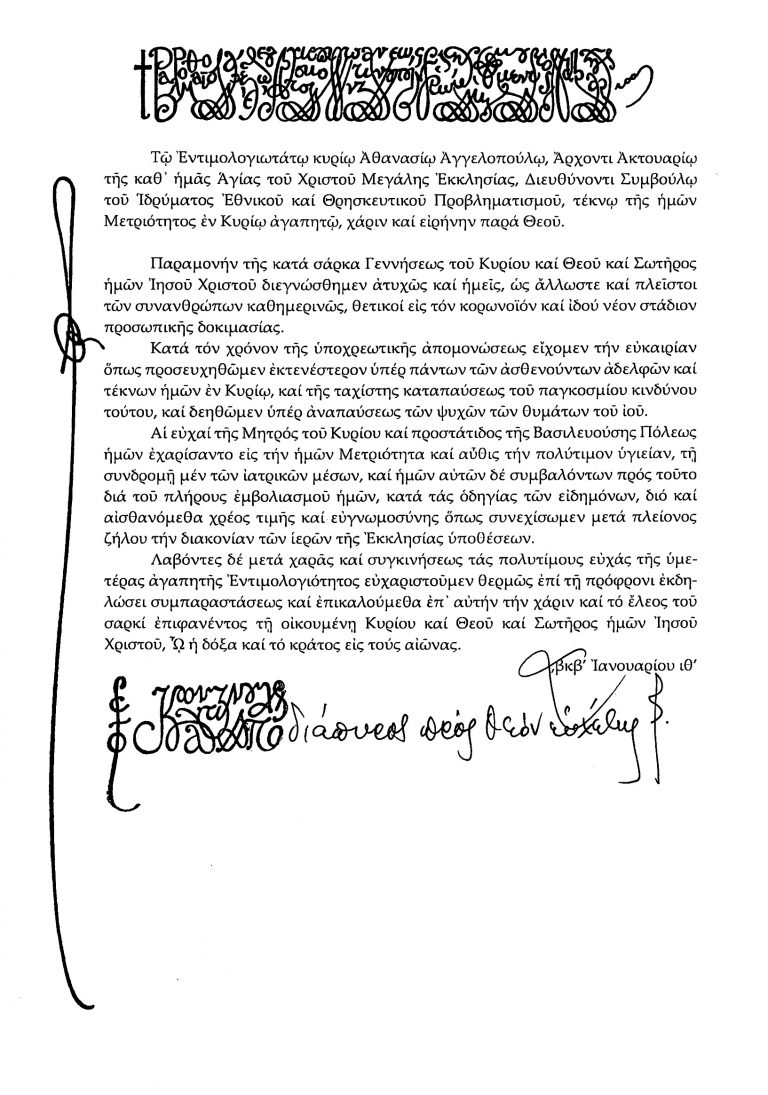 Τῷ Ἐντιμολογιωτάτῳ κυρίῳ Ἀθανασίῳ Ἀγγελοπούλῳ, Ἄρχοντι Ἀκτουαρίῳ
τῆς καθ᾽ ἡμᾶς Ἁγίας τοῦ Χριστοῦ Μεγάλης Ἐκκλησίας, Διευθύνοντι Συμβούλῳ
τοῦ Ἱδρύματος Ἐθνικοῦ καί Θρησκευτικοῦ Προβληματισμοῦ, τέκνῳ τῆς ἡμῶν
Μετριότητος ἐν Κυρίῳ ἀγαπητῷ, χάριν καί εἰρήνην παρά Θεοῦ.
Παραμονήν τῆς κατά σάρκα Γεννήσεως τοῦ Κυρίου καί Θεοῦ καί Σωτῆρος
ἡμῶν Ἰησοῦ Χριστοῦ διεγνώσθημεν ἀτυχῶς καί ἡμεῖς, ὡς ἄλλωστε καί πλεῖστοι
τῶν συνανθρώπων καθημερινῶς, θετικοί εἰς τόν κορωνοϊόν καί ἰδού νέον στάδιον
προσωπικῆς δοκιμασίας.
Κατά τόν χρόνον τῆς ὑποχρεωτικῆς ἀπομονώσεως εἴχομεν τήν εὐκαιρίαν
ὅπως προσευχηθῶμεν ἐκτενέστερον ὑπέρ πάντων τῶν ἀσθενούντων ἀδελφῶν καί
τέκνων ἡμῶν ἐν Κυρίῳ, καί τῆς ταχίστης καταπαύσεως τοῦ παγκοσμίου κινδύνου
τούτου, καί δεηθῶμεν ὑπέρ ἀναπαύσεως τῶν ψυχῶν τῶν θυμάτων τοῦ ἰοῦ.
Αἱ εὐχαί τῆς Μητρός τοῦ Κυρίου καί προστάτιδος τῆς Βασιλευούσης Πόλεως
ἡμῶν ἐχαρίσαντο εἰς τήν ἡμῶν Μετριότητα καί αὖθις τήν πολύτιμον ὑγιείαν, τῇ
συνδρομῇ μέν τῶν ἰατρικῶν μέσων, καί ἡμῶν αὐτῶν δέ συμβαλόντων πρός τοῦτο
διά τοῦ πλήρους ἐμβολιασμοῦ ἡμῶν, κατά τάς ὁδηγίας τῶν εἰδημόνων, διό καί
αἰσθανόμεθα χρέος τιμῆς καί εὐγνωμοσύνης ὅπως συνεχίσωμεν μετά πλείονος
ζήλου τήν διακονίαν τῶν ἱερῶν τῆς Ἐκκλησίας ὑποθέσεων.
Λαβόντες δέ μετά χαρᾶς καί συγκινήσεως τάς πολυτίμους εὐχάς τῆς ὑμε-
τέρας ἀγαπητῆς Ἐντιμολογιότητος εὐχαριστοῦμεν θερμῶς ἐπί τῇ πρόφρονι ἐκδη-
λώσει συμπαραστάσεως καί ἐπικαλούμεθα ἐπ᾽ αὐτήν τήν χάριν καί τό ἔλεος τοῦ
σαρκί ἐπιφανέντος τῇ οἰκουμένῃ Κυρίου καί Θεοῦ καί Σωτῆρος ἡμῶν Ἰησοῦ
Χριστοῦ, ᾯ ἡ δόξα καί τό κράτος εἰς τούς αἰῶνας.
͵βκβ᾽ Ἰανουαρίου ιθ᾽
διάπυρος πρός Θεόν εὐχέτης